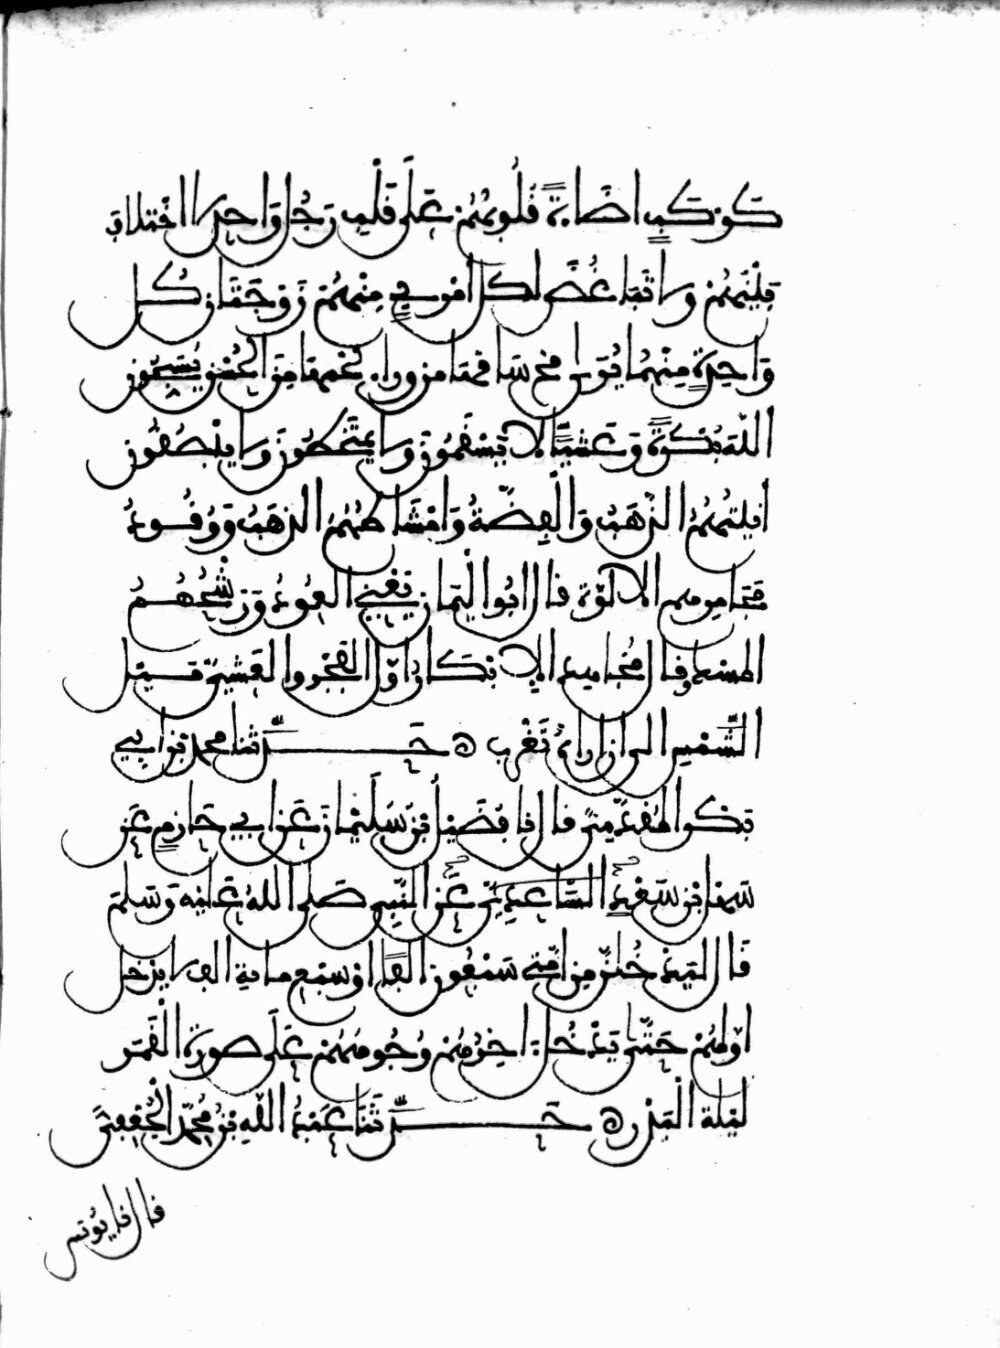 كَوْكَبٍ اضَاءةً قُلُوبُهُمْ عَلَى قَلْبِ رَجُلٍ وَاحِدٍ لا اخْتِلافَ
بَيْنَهُمْ ولا تَبَاغُضَ لِكُلِّ امْرِيٍ مِنْهُمْ زَوْجَتَانِ كُلُّ
وَاحِدَةٍ مِنْهُمَا يُرَى مخ سَاقِهَا مِن وراء لحْمِهَا مِنَ الْحُسْنِ يُسَبِّحُونَ
اللَّهَ بُكْرَةً وَعَشِيًّا لا يَسْقَمُونَ ولا يَمْتَخِطُونَ ولا يَبْصُقُونَ
آنِيَتُهُمُ الذَّهَبُ وَالْفِضَّةُ وَأمْشَاطُهُمُ الذَّهَبُ وَوُقُودُ
مَجَامِرِهِم الالُوَّة قال ابُوا الْيَمَانِ يَعْنِي الْعُودَ وَرَشْحُهُمُ
المسك وقال مُجَاهِد الابْكَارُ اوَّلُ الْفَجْرِ والْعَشِيُّ مَيْلُ
الشَّمْسِ الى ان اراهُ تَغْرب ه حَدَّثنا محمد بْن ابِي
بَكْرٍ المُقَدَّمِيّ قال نا فُضَيْلُ بْنُ سُلَيْمَانَ عَنْ ابِي حَازِمٍ عَن
سَهْلِ بْنِ سَعْدٍ السَّاعِدِيِّ عَنِ النَّبِي صَلى اللهُ عَلَيْهِ وَسَلمَ
قَال لَيَدْخُلَنَّ مِن امَّتِي سَبْعُونَ الْفا اوْ سَبْعُ مائةِ الْفٍ لا يَدْخُلُ
اوَّلُهُمْ حَتَّى يَدْخُلَ اخِرُهُمْ وُجُوهُهُمْ عَلَى صُورَةِ الْقَمَرِ
لَيْلَةَ الْبَدْرِ ه حَدَّثَنَا عَبْدُ اللَّهِ بْنُ مُحَمَّدٍ الْجُعْفِيُّ
قال نا يُونس